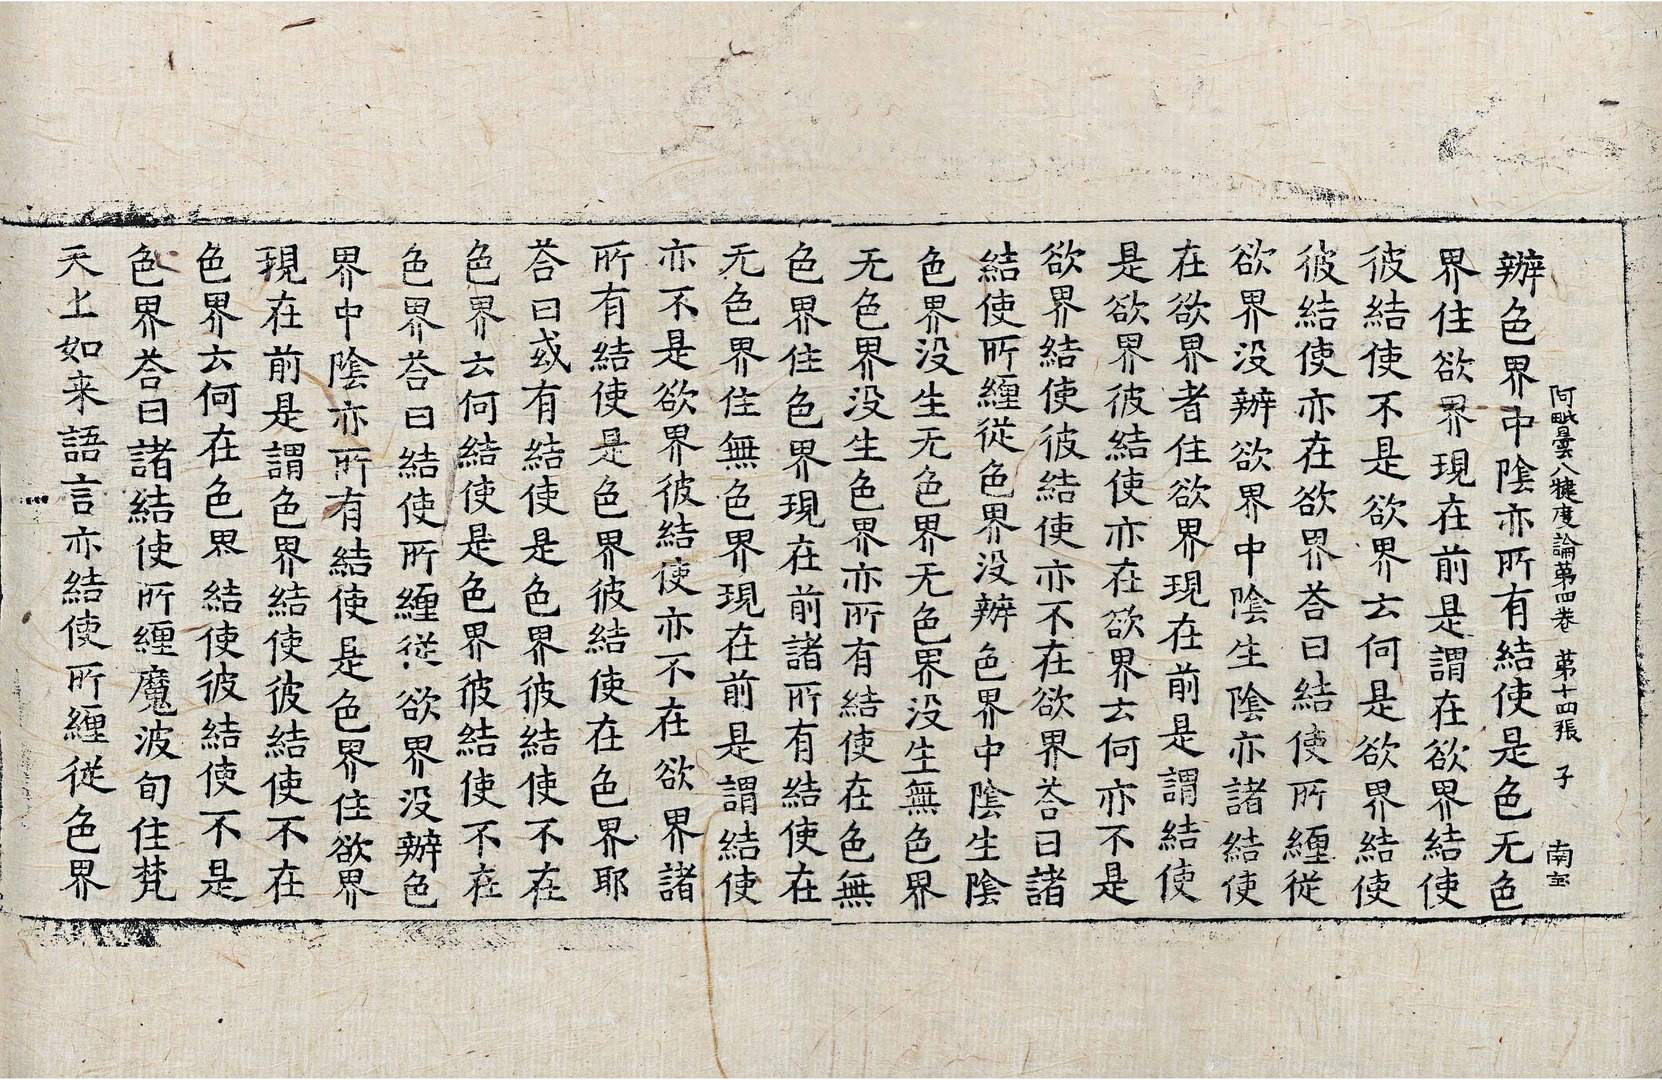 阿毗曇八犍度論苐四卷 苐十四張 子 南宝
辦色界中陰亦所有結使是色无色
界住欲界現在前是謂在欲界結使
彼結使不是欲界云何是欲界結使
彼結使亦在欲界荅曰結使所纏從
欲界没辦欲界中陰生陰亦諸結使
在欲界者住欲界現在前是謂結使
是欲界彼結使亦在欲界云何亦不是
欲界結使彼結使亦不在欲界荅曰諸
結使所纏從色界没辦色界中陰生陰
色界没生无色界无色界没生無色界
无色界没生色界亦所有結使在色無
色界住色界現在前諸所有結使在
无色界住無色界現在前是謂結使
亦不是欲界彼結使亦不在欲界諸
所有結使是色界彼結使在色界耶
荅曰或有結使是色界彼結使不在
色界云何結使是色界彼結使不在
色界荅曰結使所纏從欲界没辦色
界中陰亦所有結使是色界住欲界
現在前是謂色界結使彼結使不在
色界云何在色界結使彼結使不是
色界荅曰諸結使所纏魔波旬住梵
天上如来語言亦結使所纏從色界